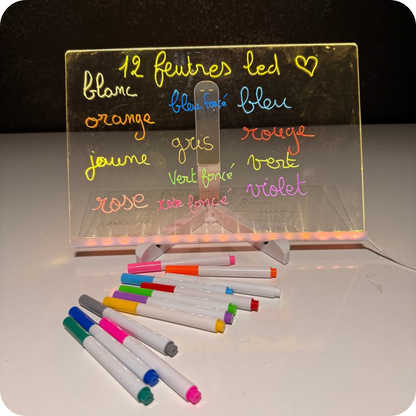 12 feutres led ♡
blanc bleu foncé bleu
orange gris rouge
jaune vert foncé vert
rose rose foncé violet